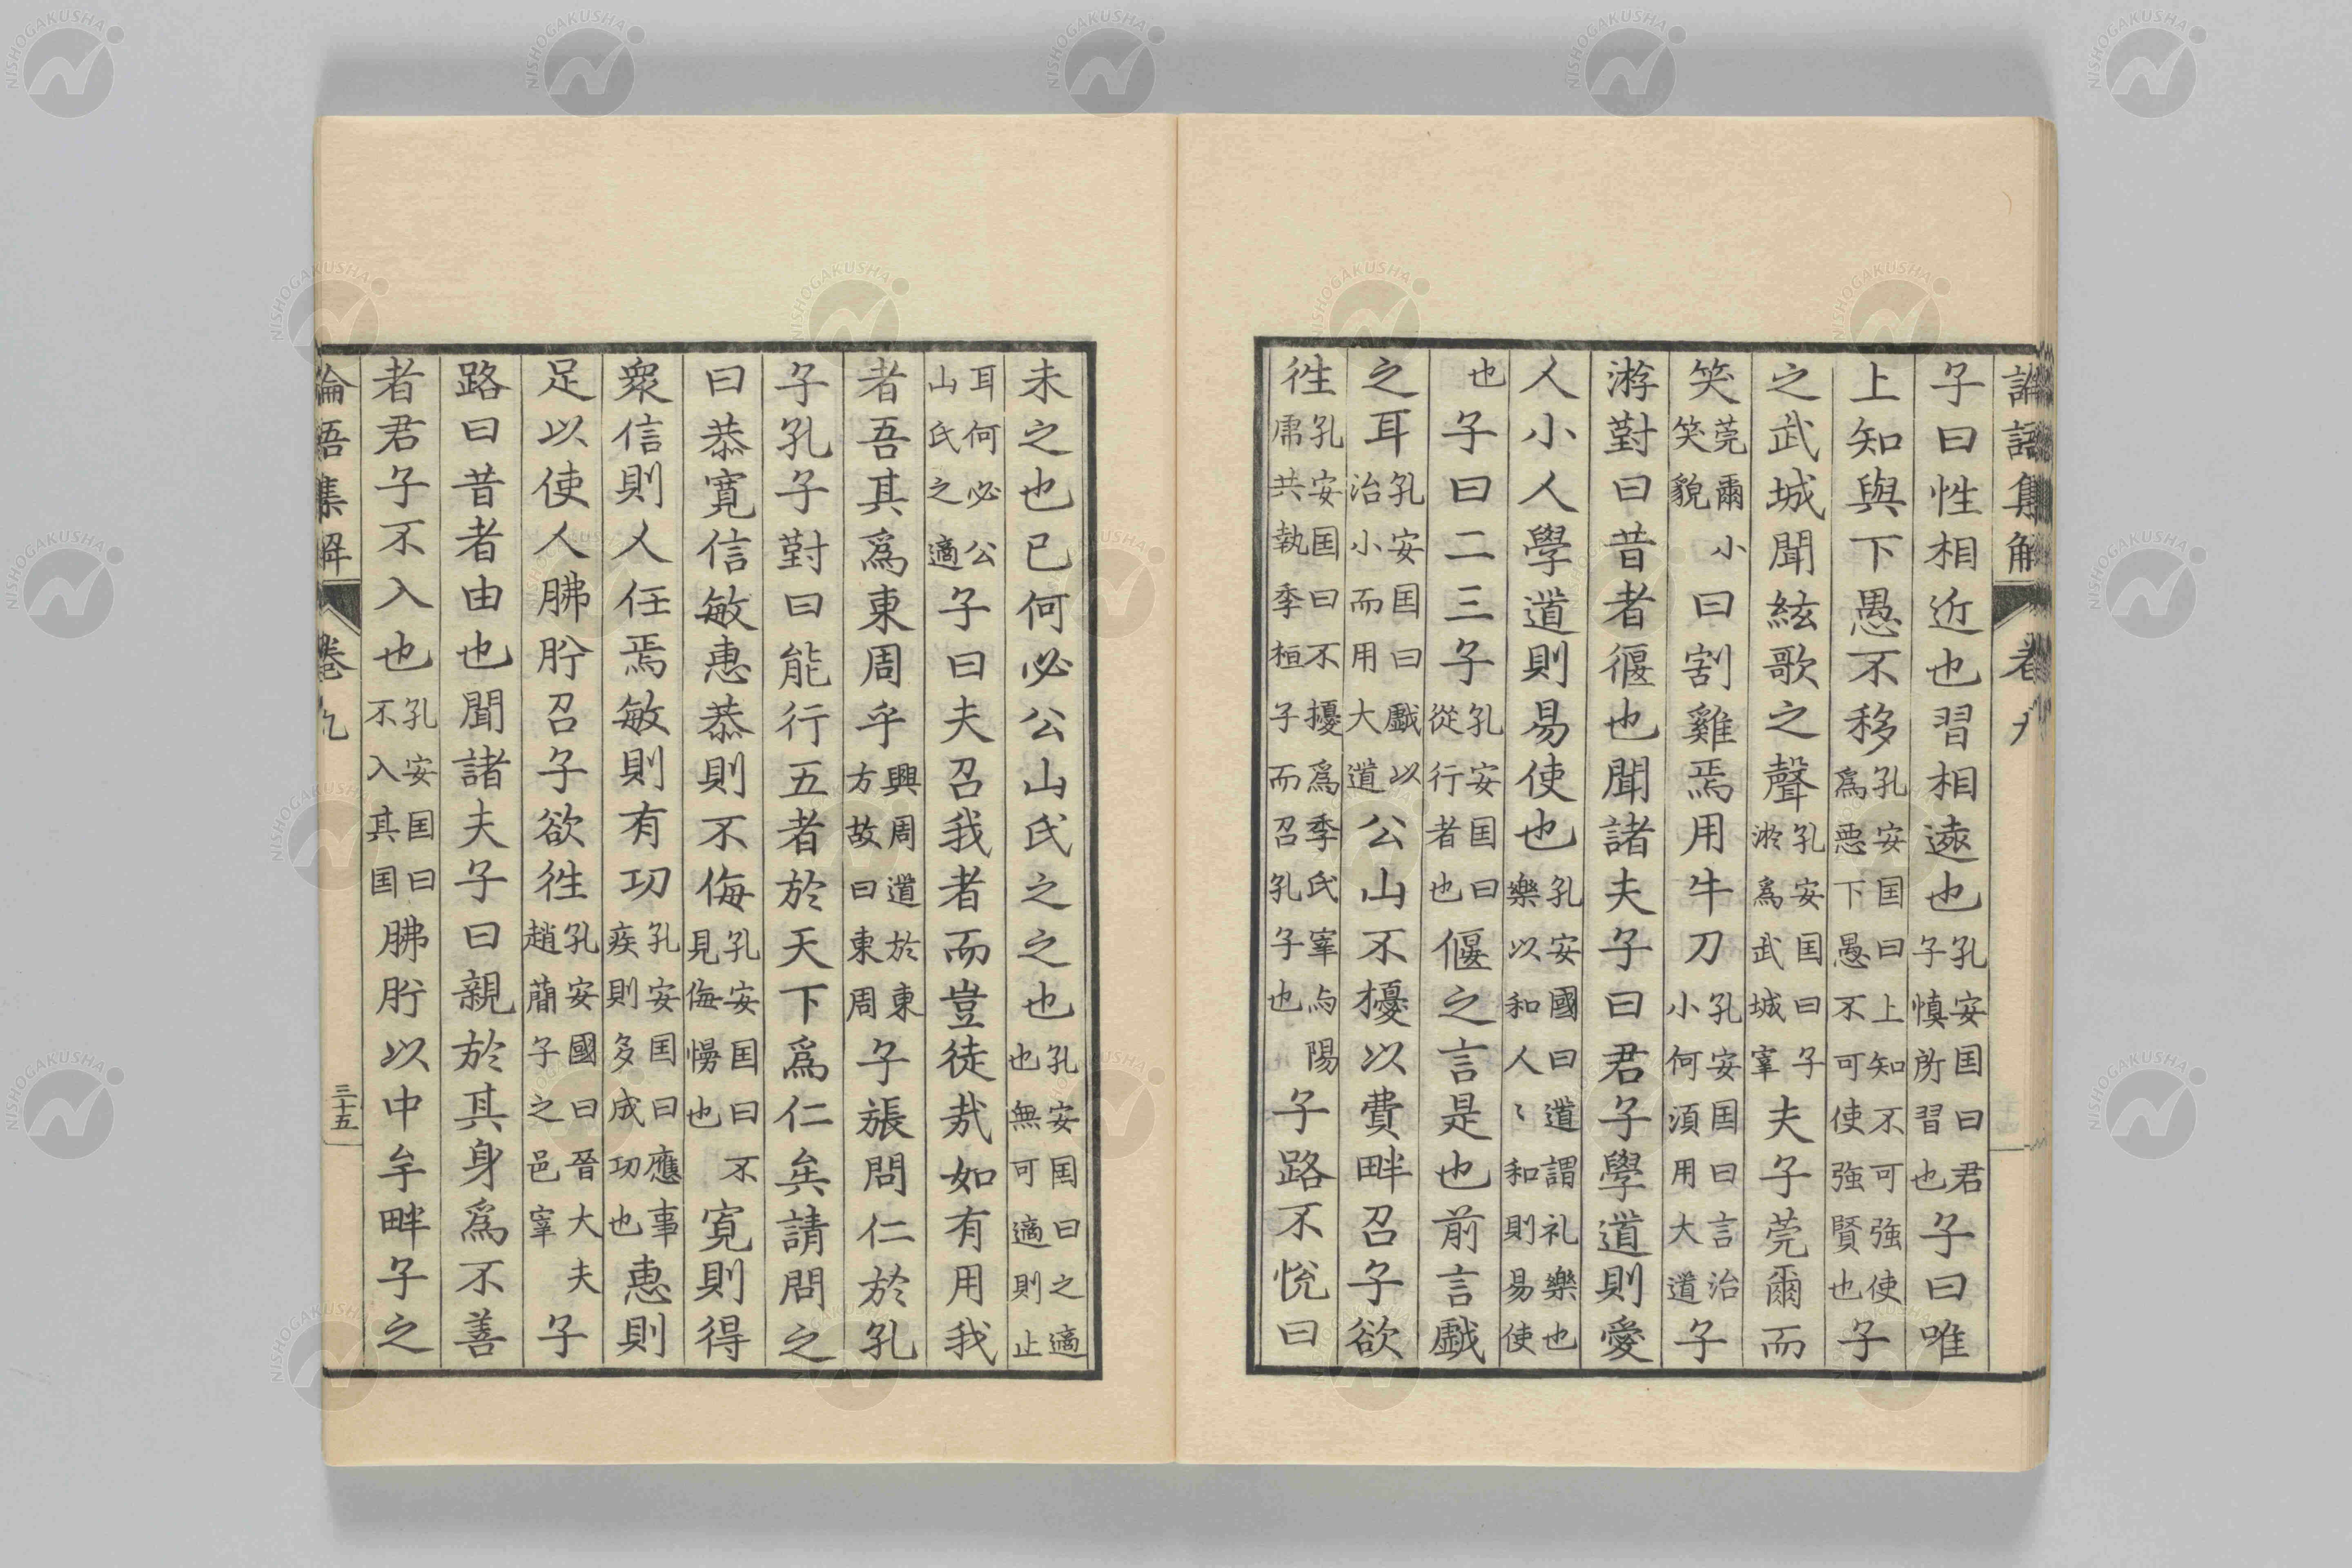 論語集解 卷九
子曰性相近也習相遠也孔安囯曰君子慎所習也子曰唯
上知與下愚不移孔安囯曰上知不可強使爲惡下愚不可使強賢也子
之武城聞絃歌之聲孔安囯曰子游爲武城宰夫子莞爾而
笑莞爾小笑貌曰割雞焉用牛刀孔安囯曰言治小何須用大道子
游對曰昔者偃也聞諸夫子曰君子學道則愛
人小人學道則易使也孔安國曰道謂礼樂也樂以和人〻和則易使
也子曰二三子孔安囯曰從行者也偃之言是也前言戯
之耳孔安囯曰戯以治小而用大道公山不擾以費畔召子欲
徃孔安囯曰不擾爲季氏宰与陽虎共執季桓子而召孔子也子路不悦曰
未之也已何必公山氏之之也孔安囯曰之適也無可適則止
耳何必公山氏之適子曰夫召我者而豈徒哉如有用我
者吾其爲東周乎興周道於東方故曰東周子張問仁於孔
子孔子對曰能行五者於天下爲仁矣請問之
曰恭寬信敏惠恭則不侮孔安囯曰不見侮慢也寬則得
衆信則人任焉敏則有功孔安囯曰應事疾則多成功也惠則
足以使人胇肸召子欲徃孔安國曰晉大夫趙蕳子之邑宰子
路曰昔者由也聞諸夫子曰親於其身爲不善
者君子不入也孔安囯曰不入其囯胇肸以中牟畔子之
論語集解 卷九 三十五
NISHOGAKUSHA